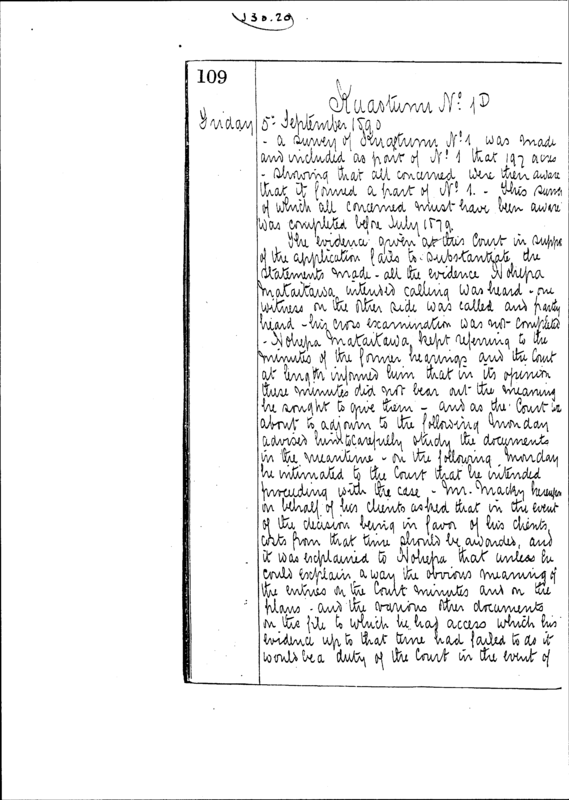 130.20
109
Kuaotunu No. 1D
Friday 5th September 1890
- a survey of Kuaotunu No. 1 was made
and included as part of No. 1 that 197 acres
- showing that all concerned were then aware
that it formed a part of No. 1. - This
of which all concerned must have been aware
was completed before July 1879.
The evidence given at this Court in
of the application fails to substantiate the
statements made - all the evidence Nohepa
Mataitawa intended calling was heard - one
witness on the other side was called and partly
heard - his cross examination was not completed
- Nohepa Mataitawa kept referring to the
minutes of the former hearings and the Court
at length informed him that in its opinion
these minutes did not bear out the meaning
he sought to give them - and as the Court
about to adjourn to the following Monday
advised him to carefully study the documents
in the meantime - on the following Monday
he intimated to the Court that he intended
proceeding with the case - Mr. Macky
on behalf of his clients asked that in the event
of the decision being in favor of his clients,
costs from that time should be awarded, and
it was explained to Nohepa that unless he
could explain away the obvious meaning of
the entries on the Court minutes and on the
plans - and the various other documents
on the file to which he had access which his
evidence up to that time had failed to do it
would be a duty of the Court in the event of